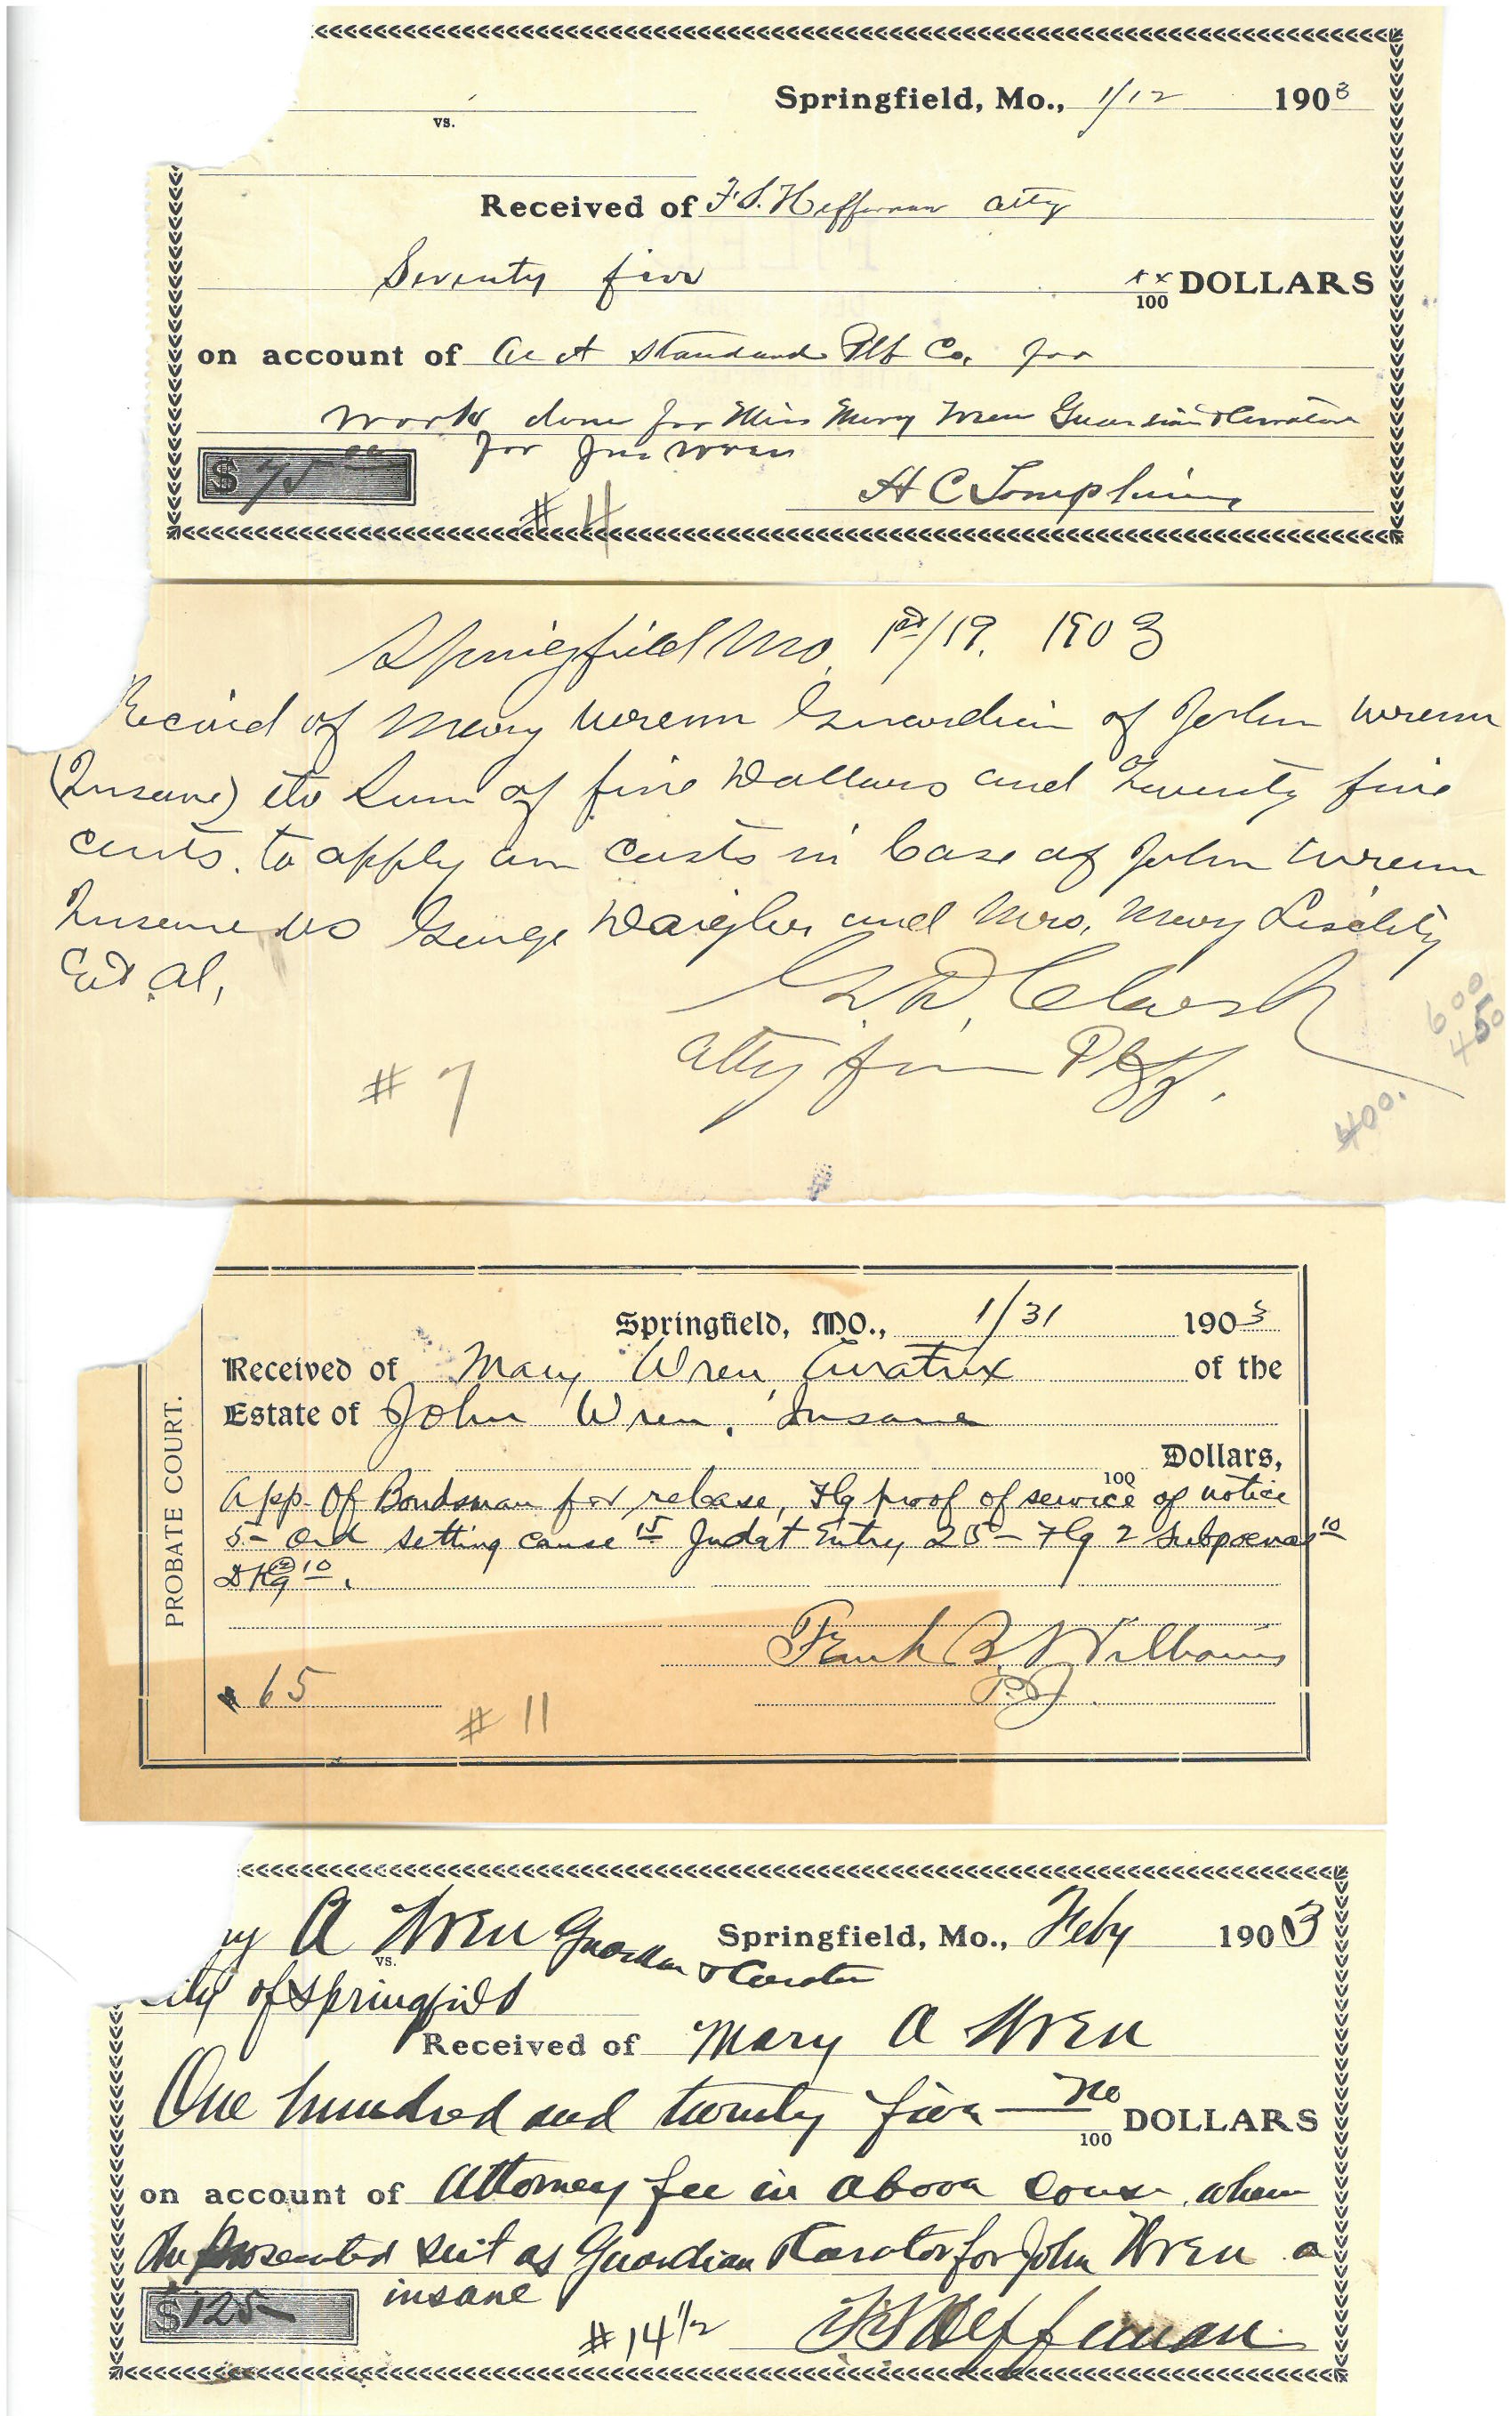 Springfield, Mo., 1/12 1903
vs.
Received of F. S. Heffernan atty
Seventy five xx/100 DOLLARS
on account of Standard Co. for
work done for Miss Mary Wren Guardian & Curator
for Jno Wren
$ 75 00
H C Tompkins
# 4
Springfield Mo. 1/19, 1903
Recived of Mary Wrenn Guardian of John Wrenn
(Insane) the Sum of five Dollars and Twenty five
cents. to apply on Costs in Case of John Wrenn
Insane vs George and Mrs. Mary
Et. Al,
G. D. Clark
atty for Plff.
# 7
600
450
400.
PROBATE COURT.
Springfield, MO., 1/31 1903
Received of Mary Wren, Curatrix of the
Estate of John Wren, Insane
Dollars,
100
App. Of Bondsman for release, Flg proof of service of notice
5- Ord setting cause 15 Judgt Entry 25- Flg 2 Subpoenas 10
10.
Frank B. Williams
P.J.
$ .65
# 11
ry A Wren Guardian & Curator
Springfield, Mo., Feby 1903
vs.
City of Springfield
Received of Mary A Wren
One hundred and twenty five no/100 DOLLARS
on account of Attorney fee in above cause where
she prosecuted suit as Guardian & Curator for John Wren a
insane
$ 125-
# 14 1/2
F S Heffernan